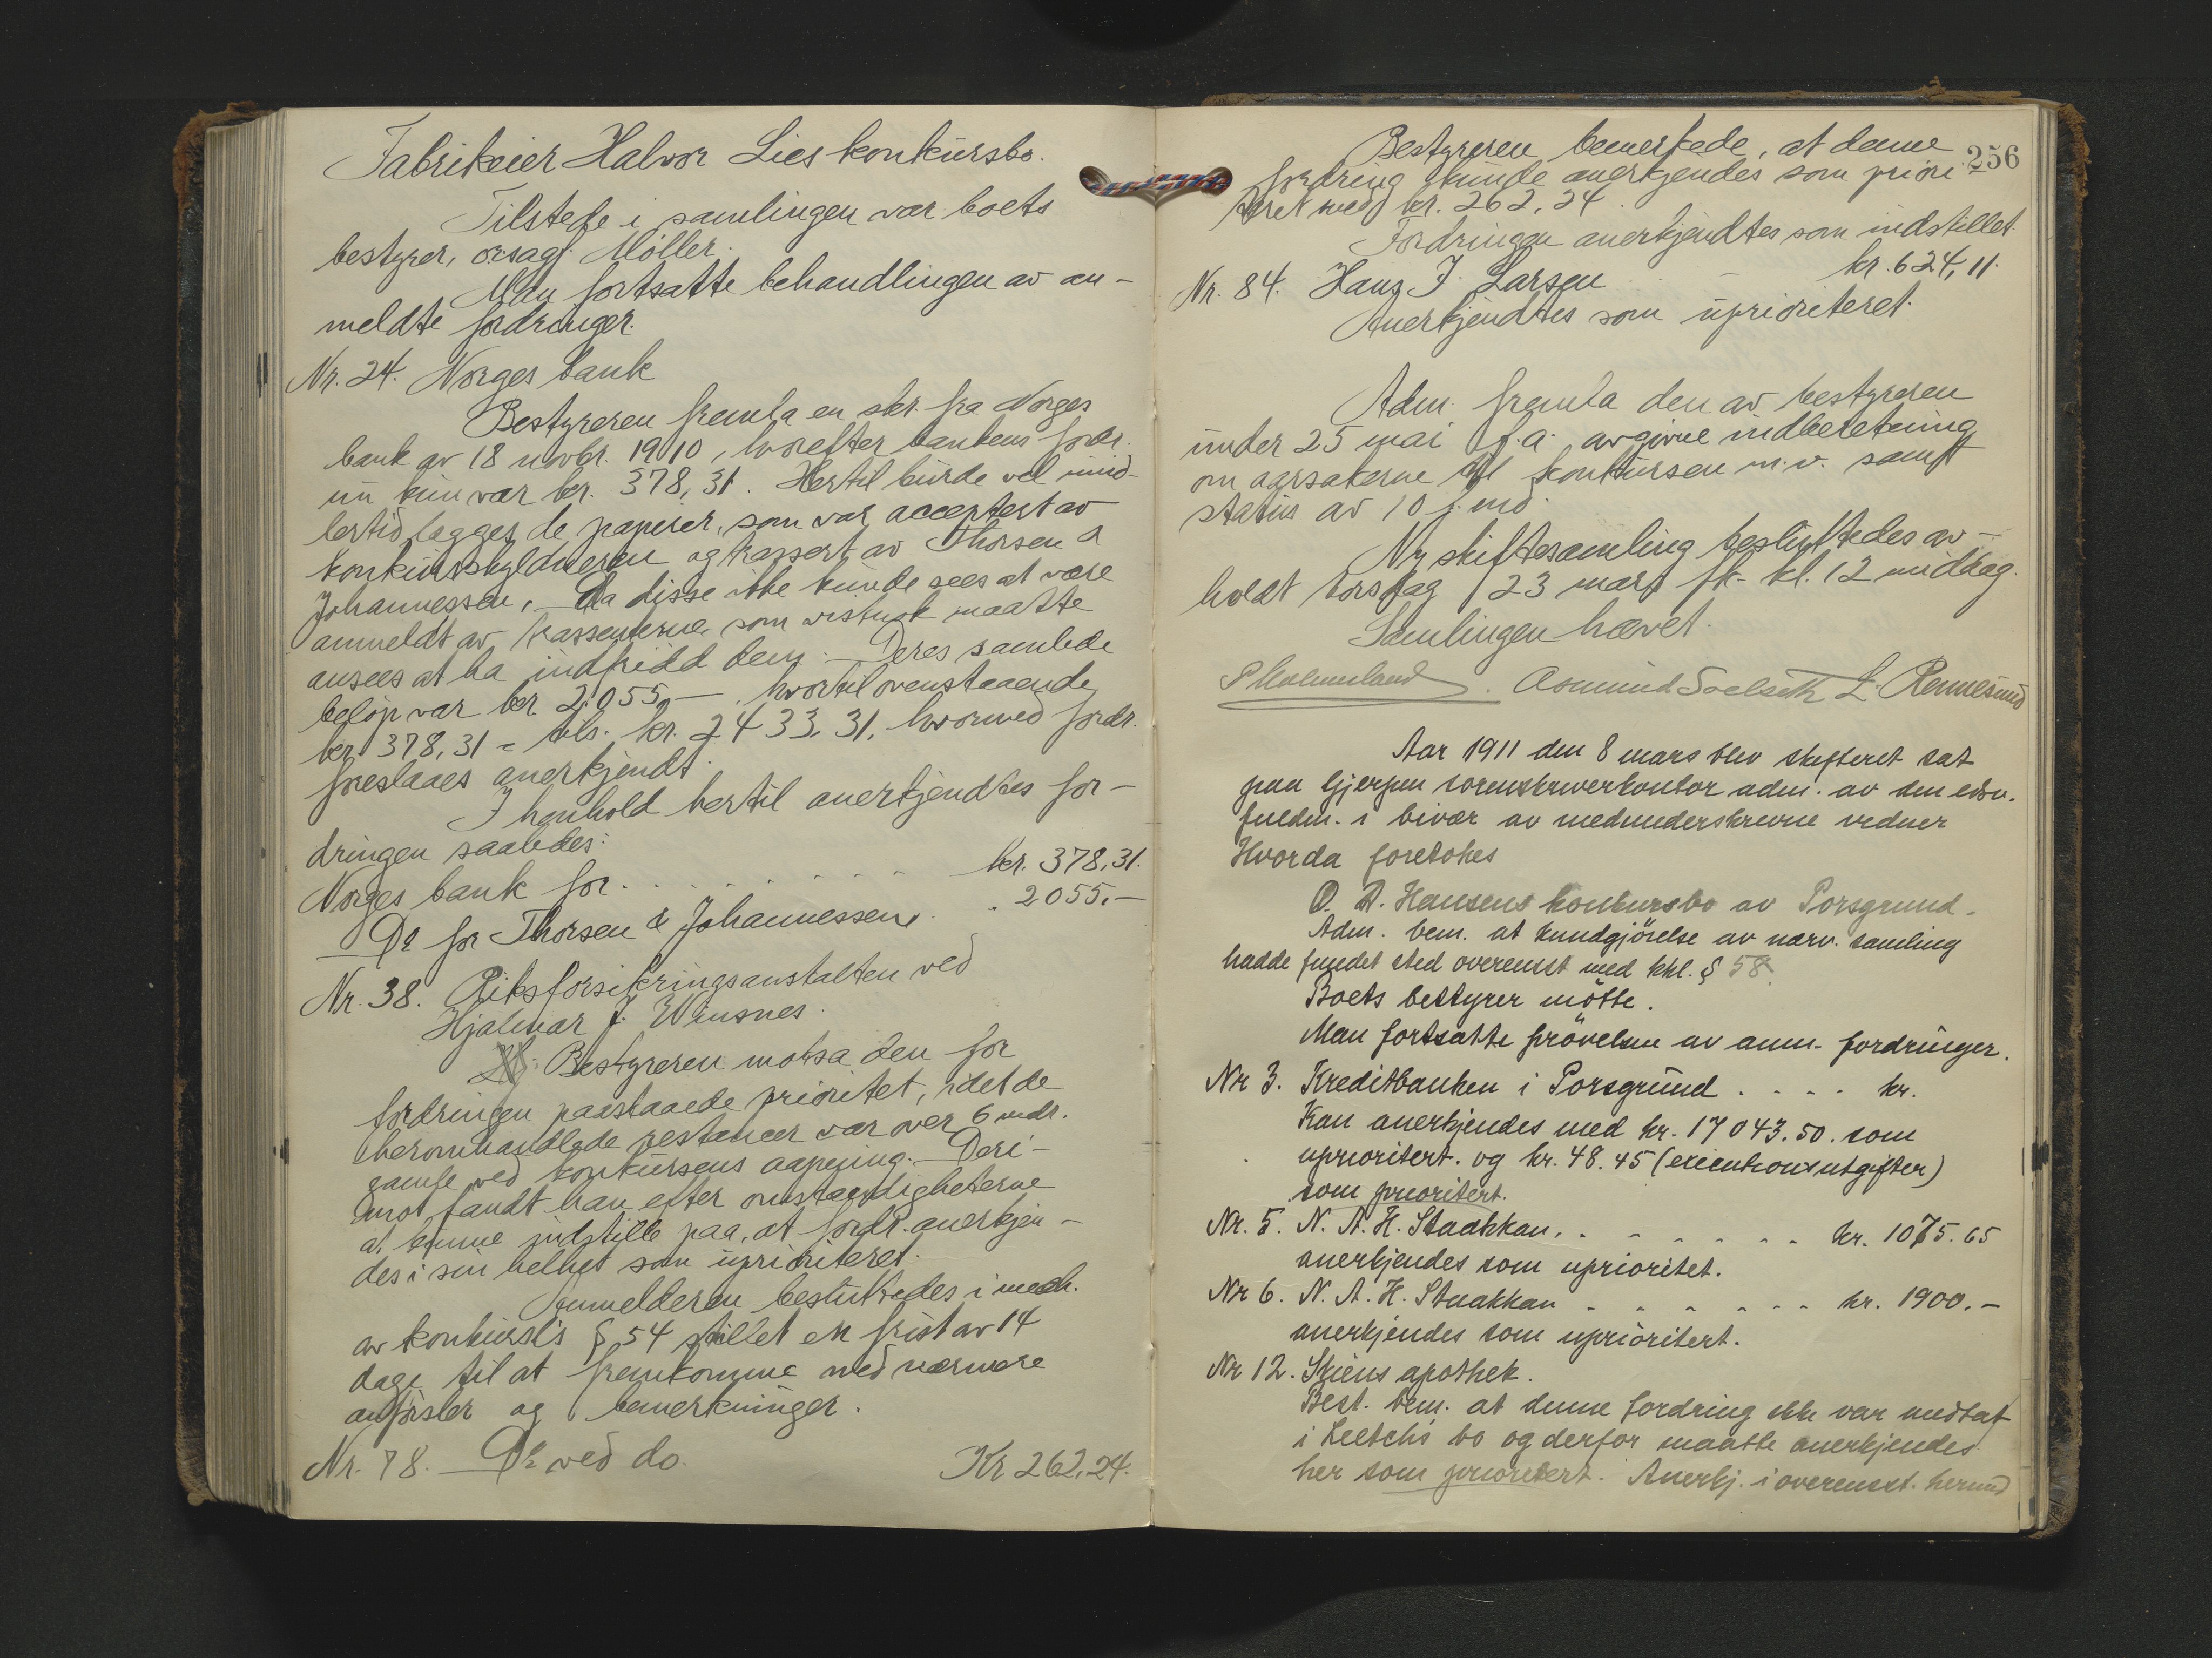 Fabrikeier Halvor Lies konkursbo.
Tilstede i samlingen var boets
bestyrer, o.r.sagf. Möller.
Man fortsatte behandlingen av an-
meldte fordringer.
Nr. 24. Norges bank
Bestyreren fremla en skr. fra Norges
bank av 18 novbr. 1910, hvorefter bankens fordr.
nu kun var kr. 378,31. Hertil burde vel imid-
lertid lægges de papirer, som var acceptert av
konkursskyldneren og trassert av Thorsen &
Johannessen, da disse ikke kunde sees at være
anmeldt av trassenterne som vistnok maatte
ansees at ha indfridd dem. Deres samlede
beløp var kr. 2055,— hvortil ovenstaaende
kr. 378,31 = tils. kr. 2433,31, hvormed fordr.
foreslaaes anerkjendt.
I henhold hertil anerkjendtes for-
dringen saaledes:
Norges bank for . . . . . . . kr. 378,31.
Do for Thorsen & Johannessen . . 2055.—
Nr. 38. Riksforsikringsanstalten ved
Hjalmar J. Winsnes.
Bestyreren motsa den for
fordringen paastaaede prioritet, idet de
heromhandlede restancer var over 6 mdr.
gamle ved konkursens aapning. Deri-
mot fandt han efter omstændigheterne
at kunne indstille paa, at fordr. anerkjen-
des i sin helhet som uprioriteret.
Anmelderen besluttedes i medh.
av konkursl's § 54 stillet en frist av 14
dage til at fremkomme med nærmere
anførsler og bemerkninger.
Nr. 78. Do ved do. Kr 262,24.
256
Bestyreren bemerkede, at denne
fordring kunde anerkjendes som priori-
teret med kr. 262,24.
Fordringen anerkjendtes som indstillet.
Nr. 84. Hans J. Larsen — kr. 624,11.
Anerkjendtes som uprioriteret.
Adm. fremla den av bestyreren
under 25 mai f.a. avgivne indberetning
om aarsakerne til konkursen m.v. samt
status av 10 s. md.
Ny skiftesamling besluttedes av-
holdt torsdag 23 mars fk. kl. 12 middag.
Samlingen hævet.
P Holmeland. Asmund Soelseth L. Rennesund
Aar 1911 den 8 mars blev skifteret sat
paa Gjerpen sorenskriverkontor adm. av den edsv.
fuldm. i bivær av medunderskrevne vidner
Hvorda foretokes
O. A. Hansens konkursbo av Porsgrund.
Adm. bem. at kundgjörelse av nærv. samling
hadde fundet sted overensst med kkl. § 58.
Boets bestyrer mötte.
Man fortsatte prövelsen av anm. fordringer.
Nr 3. Kreditbanken i Porsgrund . . . . kr.
Kan anerkjendes med kr. 17043.50. som
uprioritert. og kr. 48.45 (executionsutgifter)
som prioritert.
Nr. 5. N. A. H. Staahkan. . . . . . . kr. 1075.65
anerkjendes som uprioritet.
Nr 6. N. A. H. Staahkan . . . . . . kr. 1900.—
anerkjendes som uprioritert.
Nr 12. Skiens apothek.
Best. bem. at denne fordring ikke var medtat
i bo og derfor maatte anerkjendes
her som prioritert. Anerkj. i overensst. hermed